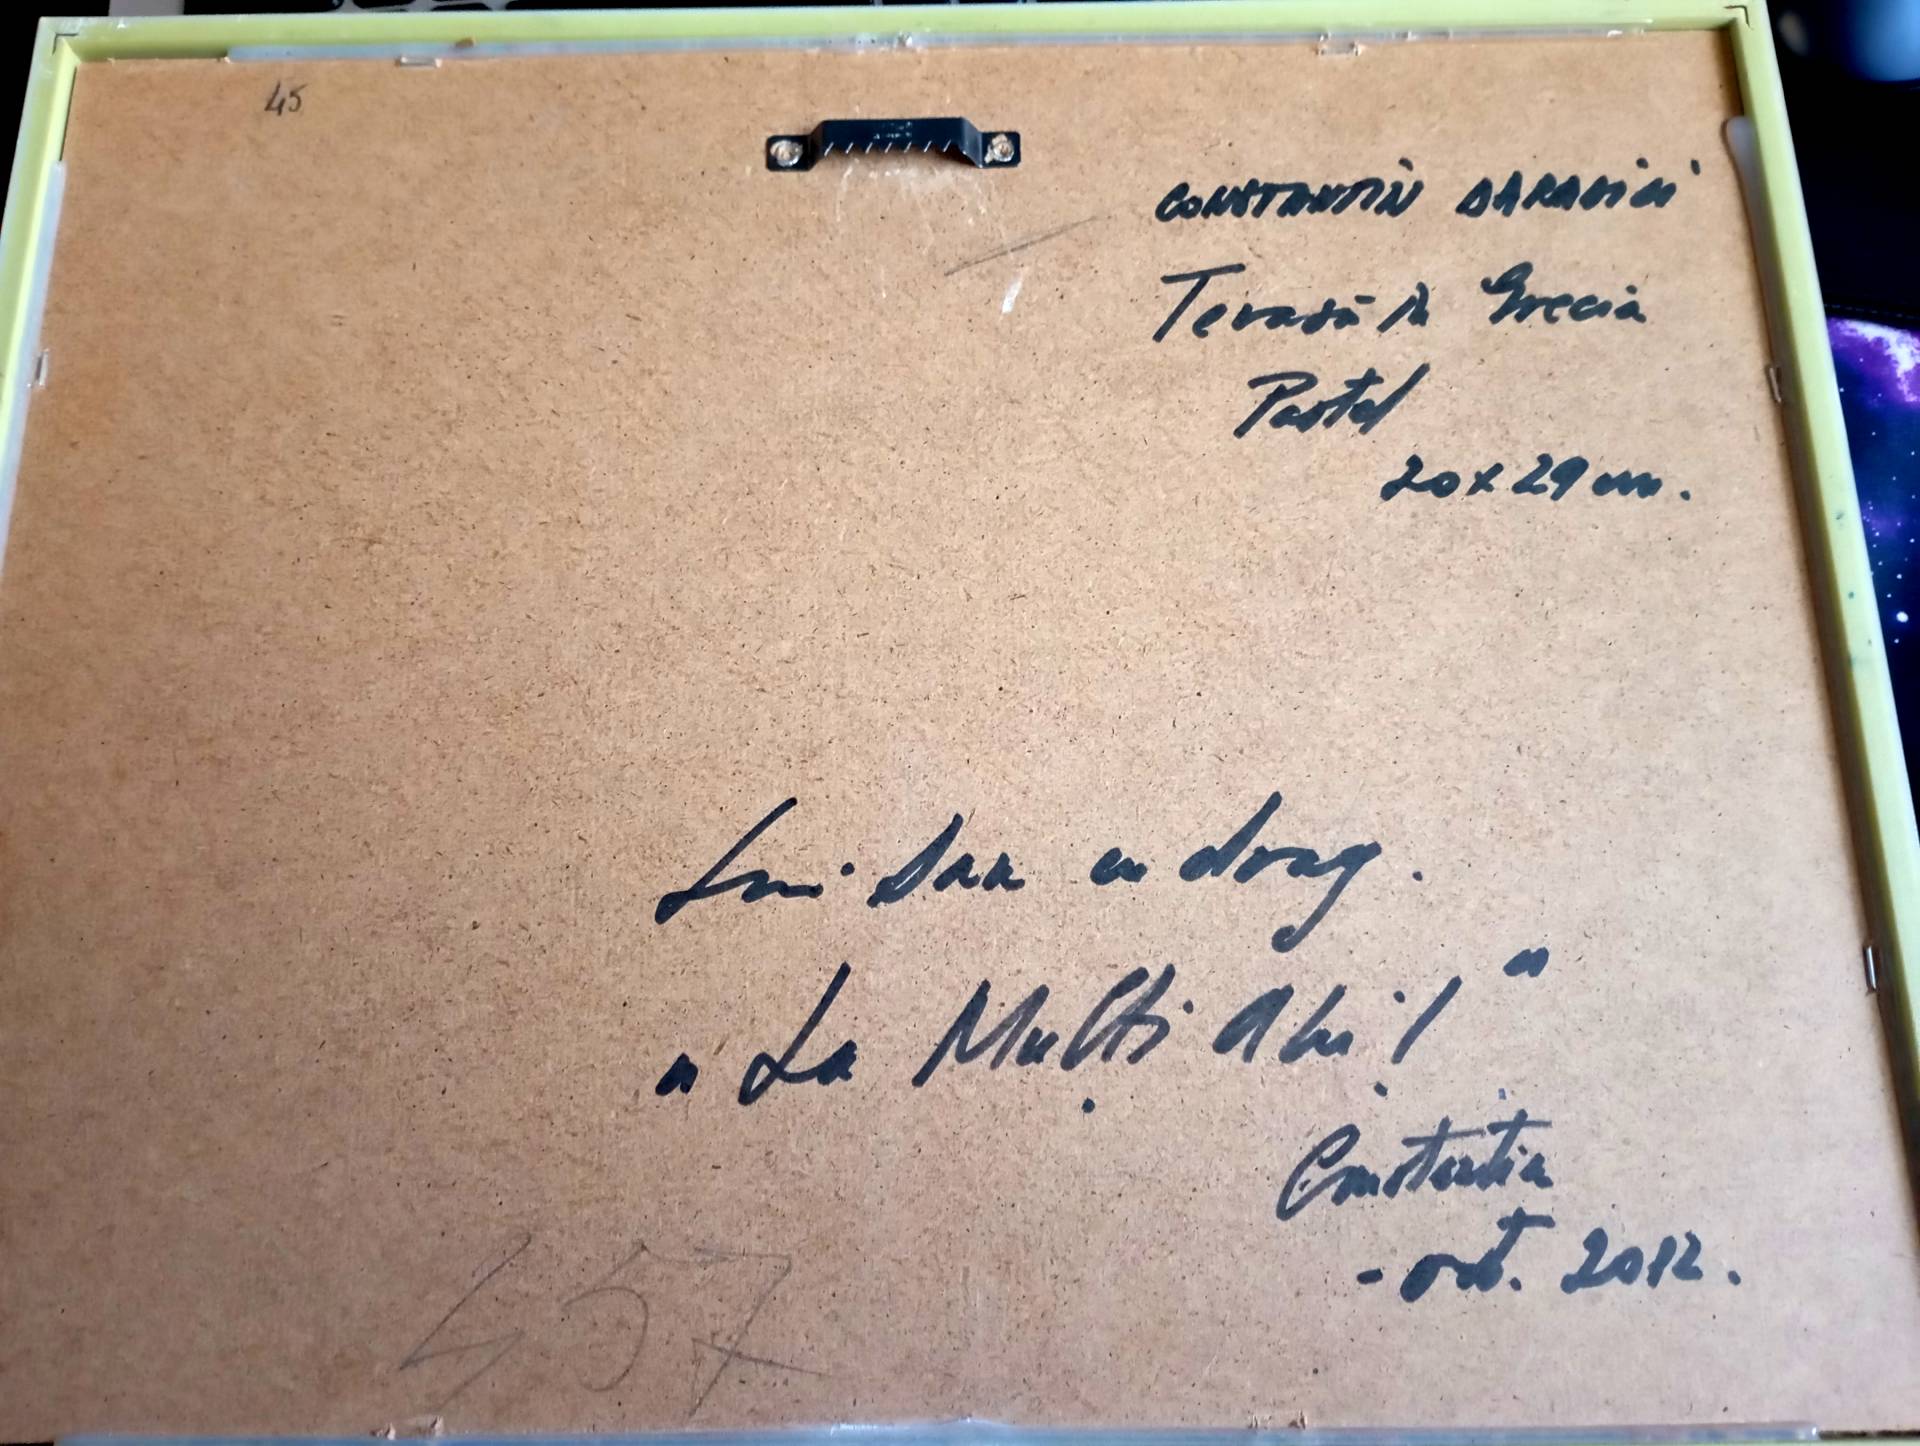 45
CONSTANTIN DARADICI
Terasă în Grecia
Pastel
20x29 cm.
Lui Dan cu drag.
„La Mulți Ani!"
Constantin
- oct. 2012.
457